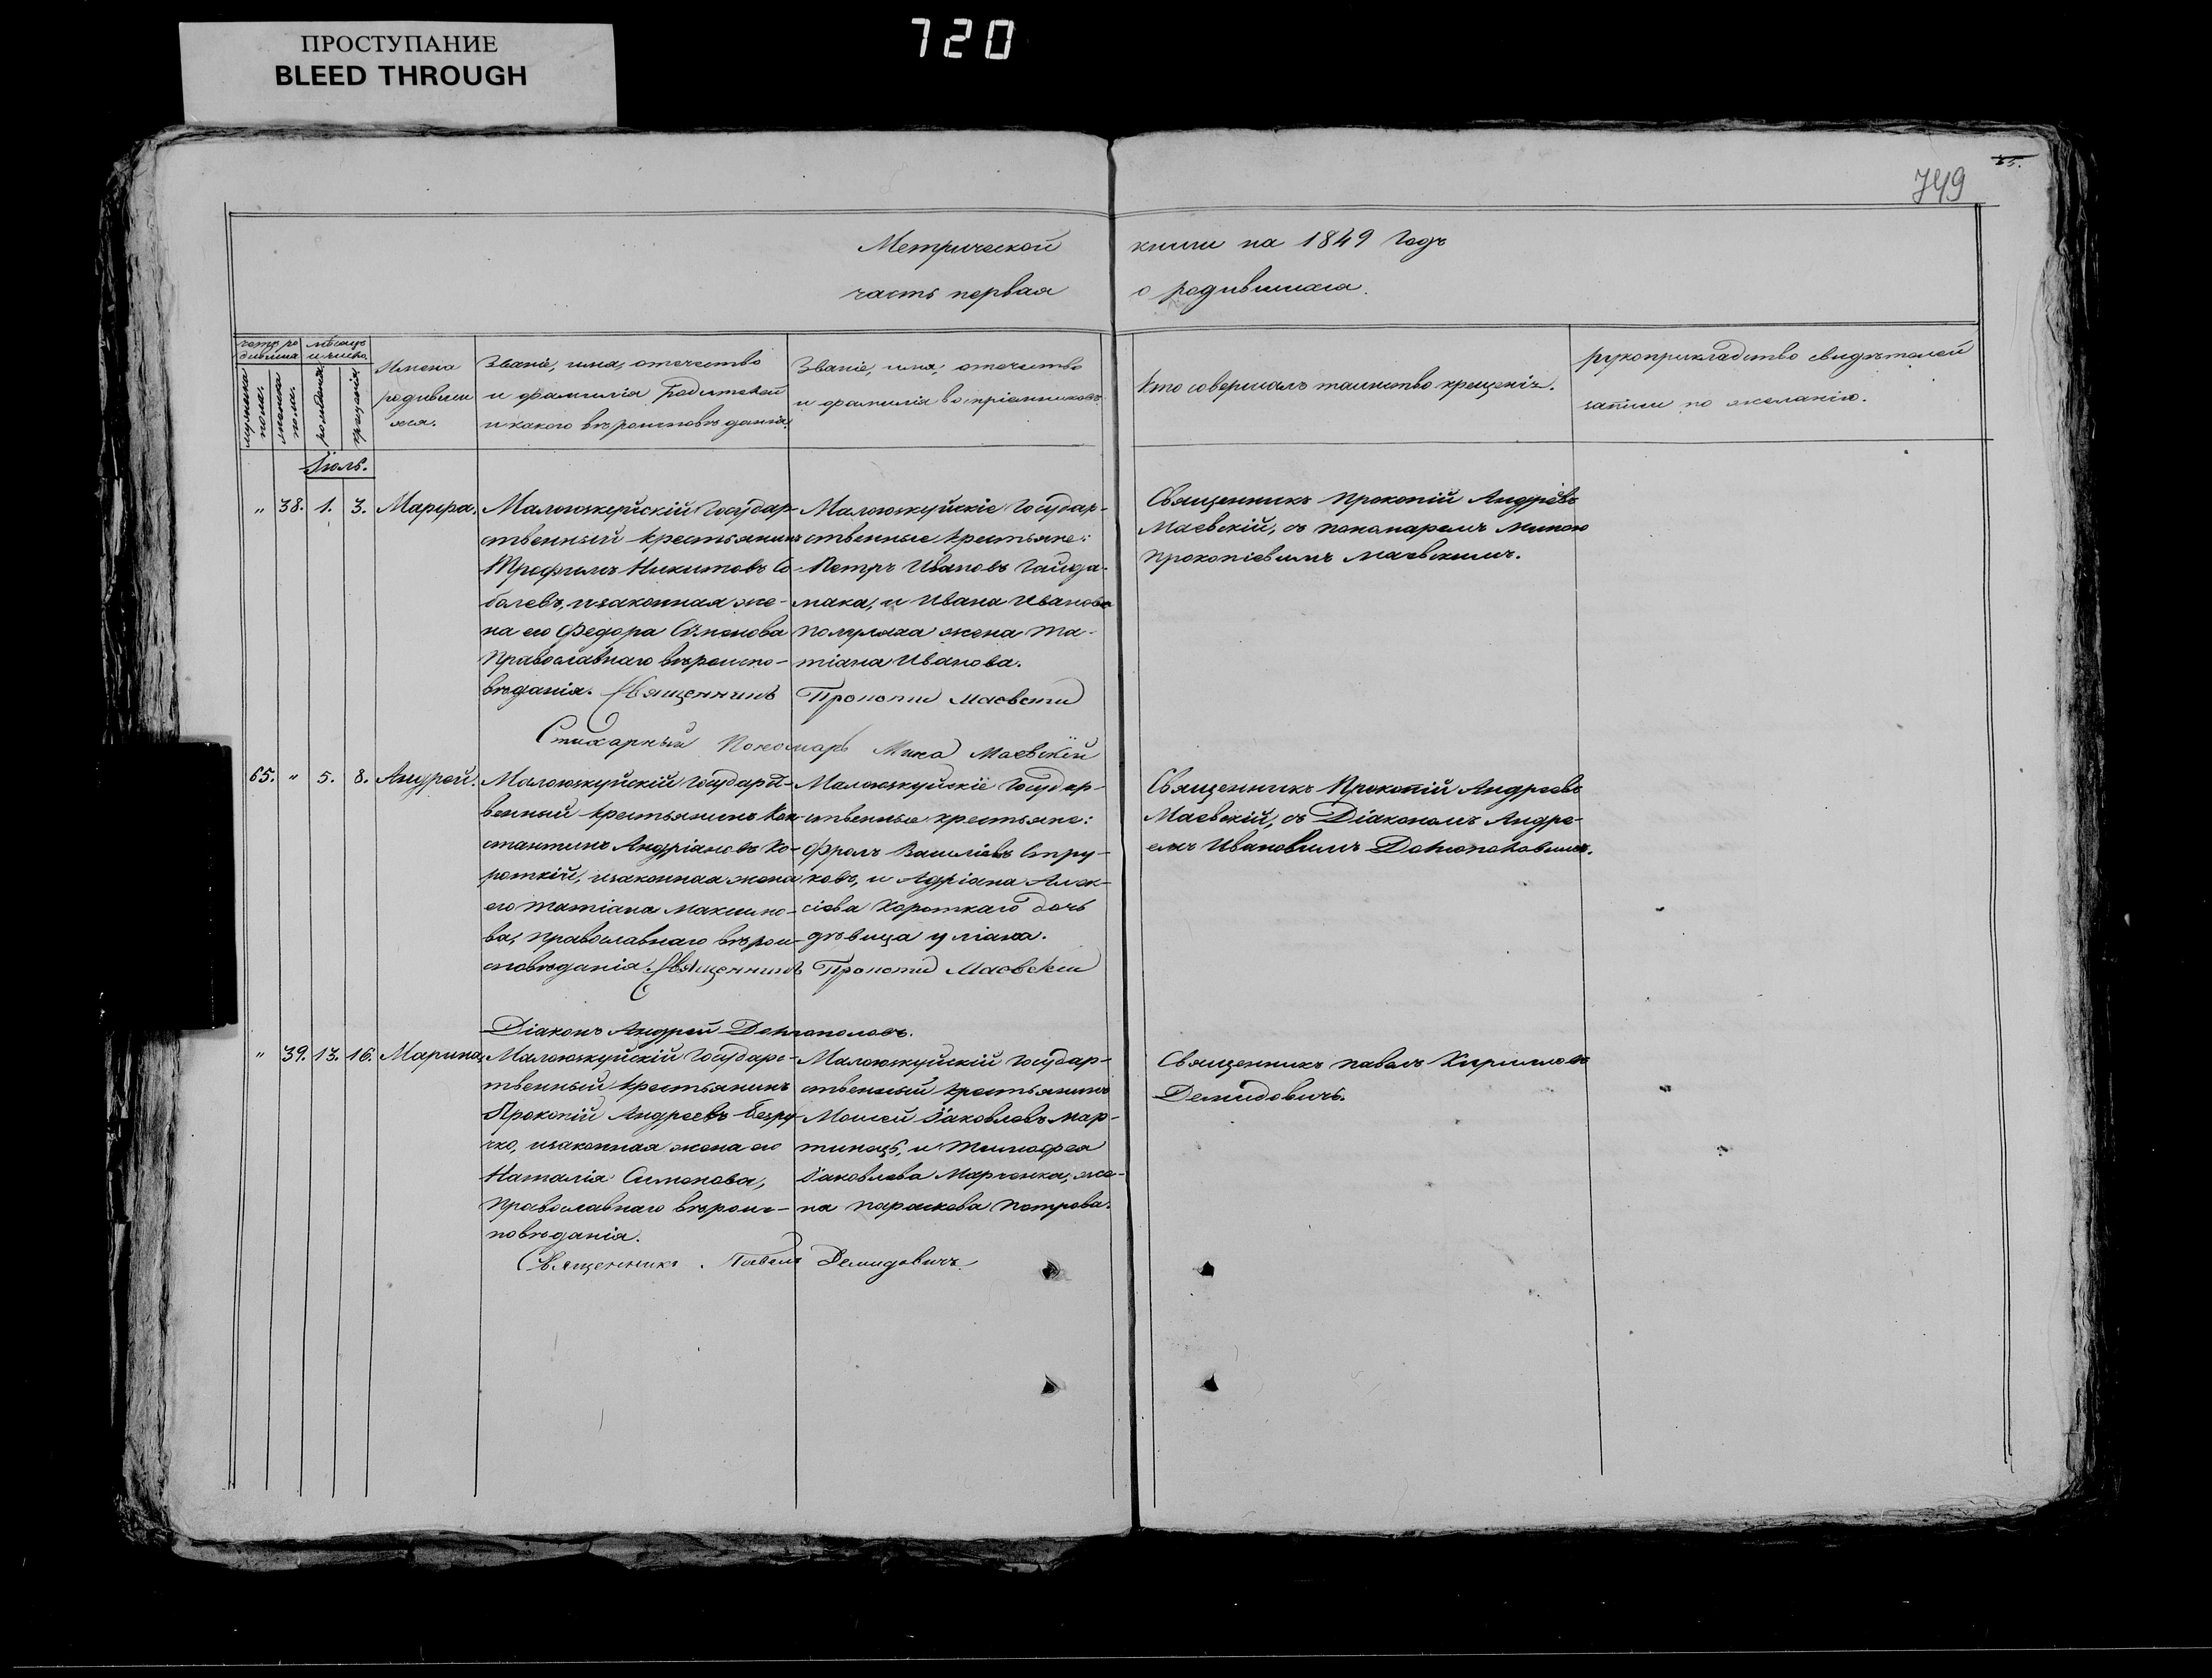 ПРОСТУПАНИЕ
BLEED THROUGH
720
749
Метрической книги на 1849 Годъ
часть первая о родившихся.
мужеска пола.
женска пола.
мѣсяцъ и число.
рожденія
крещенія
Имена
родивши
хся.
Званіе, имя, отечество
и фамилія Родителей
и какого вѣроисповѣданія.
Званіе, имя, отечество
и фамилія воспріемниковъ
Кто совершалъ таинство крещенія.
рукоприкладство свидѣтелей
записи по желанію.
Іюль.
" 38. 1. 3. Марѳа.
Малоюзкуйскій Государ-
ственный крестьянинъ
Трофимъ Никитовъ Со-
болевъ, и законная же-
на его Федора Симонова
Православнаго вѣроиспо-
вѣданія. Священникъ Прокопій Маевскій
Стихарный Пономарь Мина Маевскій
Малоюзкуйскіе Государ-
ственные крестьяне:
Петръ Ивановъ Гайда-
мака, и Ивана Иванова
Полуляха жена Та-
тіана Иванова.
Священникъ Прокопій Андреевъ
Маевскій, съ пономаремъ Миною
Прокопіевымъ Маевскимъ.
65. " 5. 8. Андрей.
Малоюзкуйскій Государст-
венный крестьянинъ Кон-
стантинъ Андріановъ Ко-
роткій, и законная жена
его Татіана Максимо-
ва, православнаго вѣрои-
споведанія. Священникъ Прокопій Маевскій
Діаконъ Андрей
Малоюзкуйскіе Государ-
ственные крестьяне:
Фролъ Василіевъ Стру-
ковъ, и Адріана Алек-
сіева Короткаго дочь
дѣвица Уліана.
Священникъ Прокопій Андреевъ
Маевскій, съ Діакономъ Андре-
емъ Ивановымъ
" 39. 13. 16. Марина.
Малоюзкуйскій Государс-
твенный крестьянинъ
Прокопій Андреевъ Безру-
чко, и законная жена его
Наталія Симонова,
Православнаго вѣроис-
повѣданія.
Священникъ Павелъ Демидовичъ
Малоюзкуйскій Государ-
ственный крестьянинъ
Моисей Яковлевъ Мар-
тинецъ, и Тимофея
Яковлева Марченка, же-
на Параскева Петрова.
Священникъ Павелъ Кирилловъ
Демидовичъ.